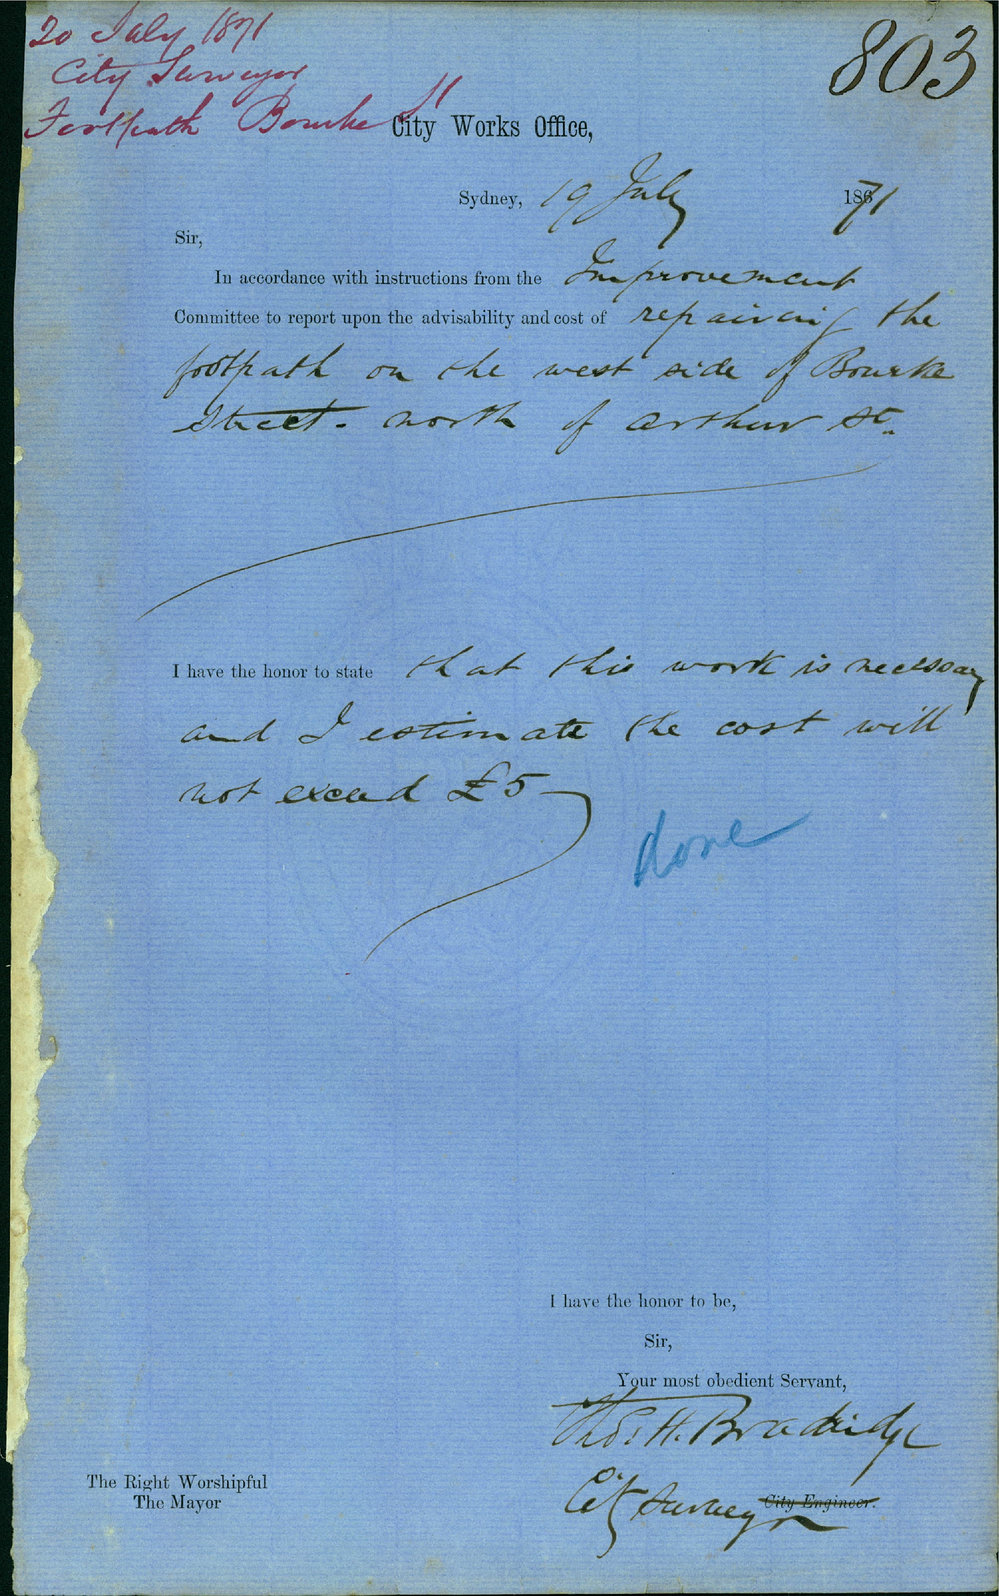 20 July 1871
City Surveyor
Footpath Bourke St
803
City Works Office,
Sydney, 19 July 1871
Sir,
In accordance with instructions from the Improvement
Committee to report upon the advisability and cost of repairing the
footpath on the west side of Bourke
Street. north of Arthur St.
I have the honor to state that this work is necessary
and I estimate the cost will
not exceed £5
done
I have the honor to be,
Sir,
Your most obedient Servant,
Thos. H. Bradridge
City Surveyor City Engineer.
The Right Worshipful
The Mayor